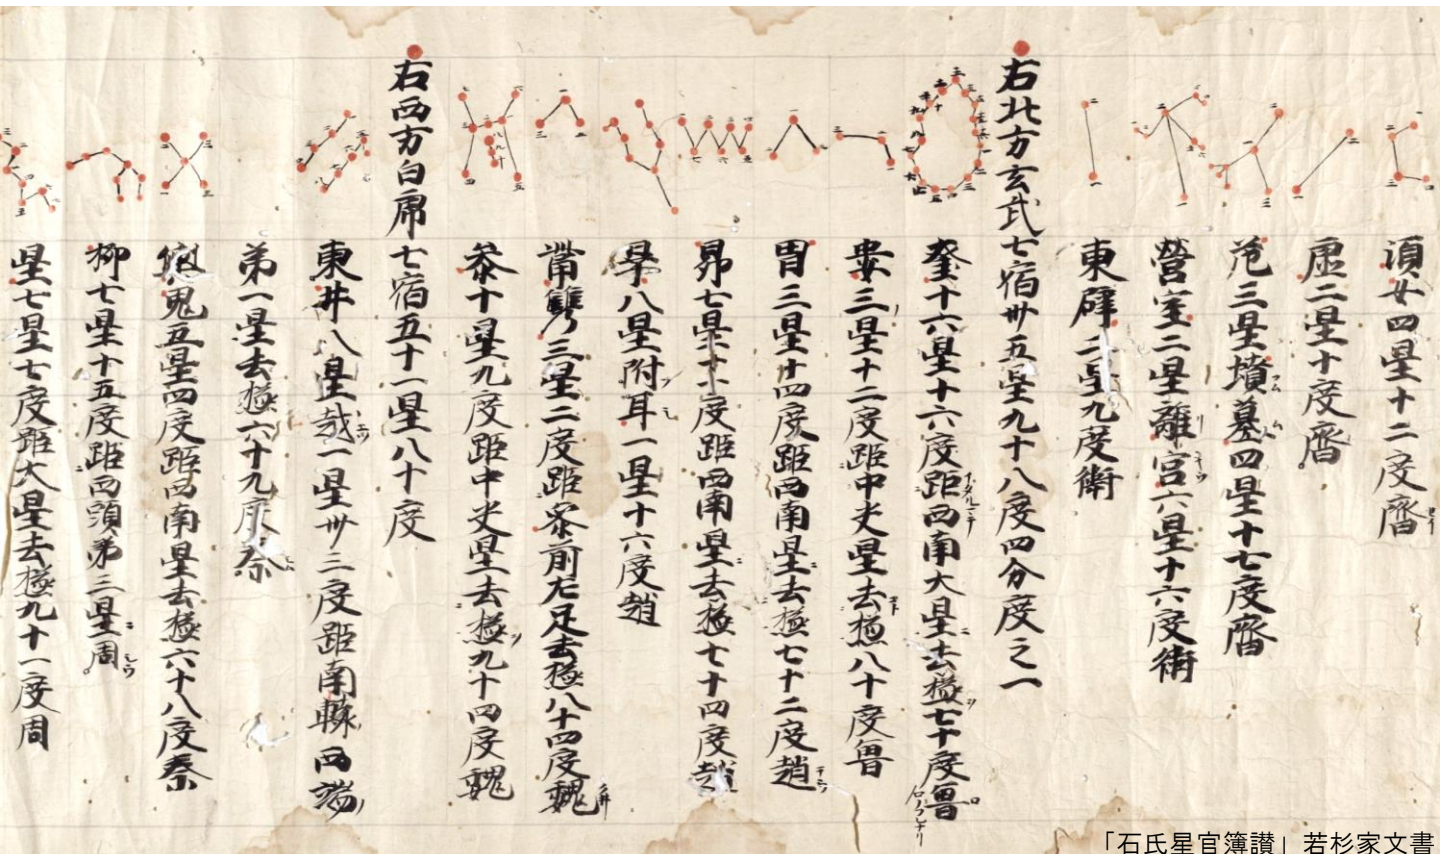 須女四星十二度齊
虛二星十度齊
危三星墳墓四星十七度齊
營室二星離宮六星十六度衛
東壁二星九度衛
右北方玄武七宿卅五星九十八度四分度之一
奎十六星十六度距西南大星去極七十度魯
婁三星十二度距中央星去極八十度魯
胃三星十四度距西南星去極七十二度趙
昴七星十一度距西南星去極七十四度趙
畢八星附耳一星十六度趙
觜觿三星二度距參前左足去極八十四度魏
參十星九度距中央星去極九十四度魏
右西方白虎七宿五十一星八十度
東井八星越一星卅三度距南轅西端
第一星去極六十九度秦
輿鬼五星四度距西南星去極六十八度秦
柳七星十五度距西頭第三星周
星七星七度距大星去極九十一度周
「石氏星官簿讃」若杉家文書